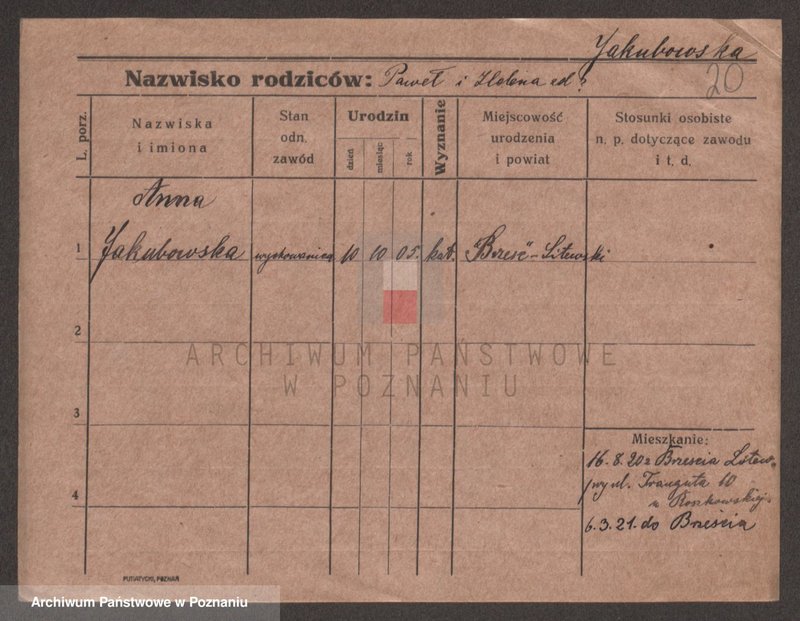 Jakubowska
20
Nazwisko rodziców: Paweł i Helena zd. ?
L. porz.
Nazwiska
i imiona
Stan
odn.
zawód
Urodzin
dzień
miesiąc
rok
Wyznanie
Miejscowość
urodzenia
i powiat
Stosunki osobiste
n. p. dotyczące zawodu
i t. d.
Anna
1 Jakubowska wychowanica 10 10 05. kat. "Brześć" - Litewski
2
ARCHIWUM PAŃSTWOWE
W POZNANIU
3
Mieszkanie:
16.8.20 z Brześcia Litew.
przy ul. Trauguta 10
u Roszkowskiej
4
6.3.21. do Brześcia
PUTIATYCKI, POZNAŃ
Archiwum Państwowe w Poznaniu